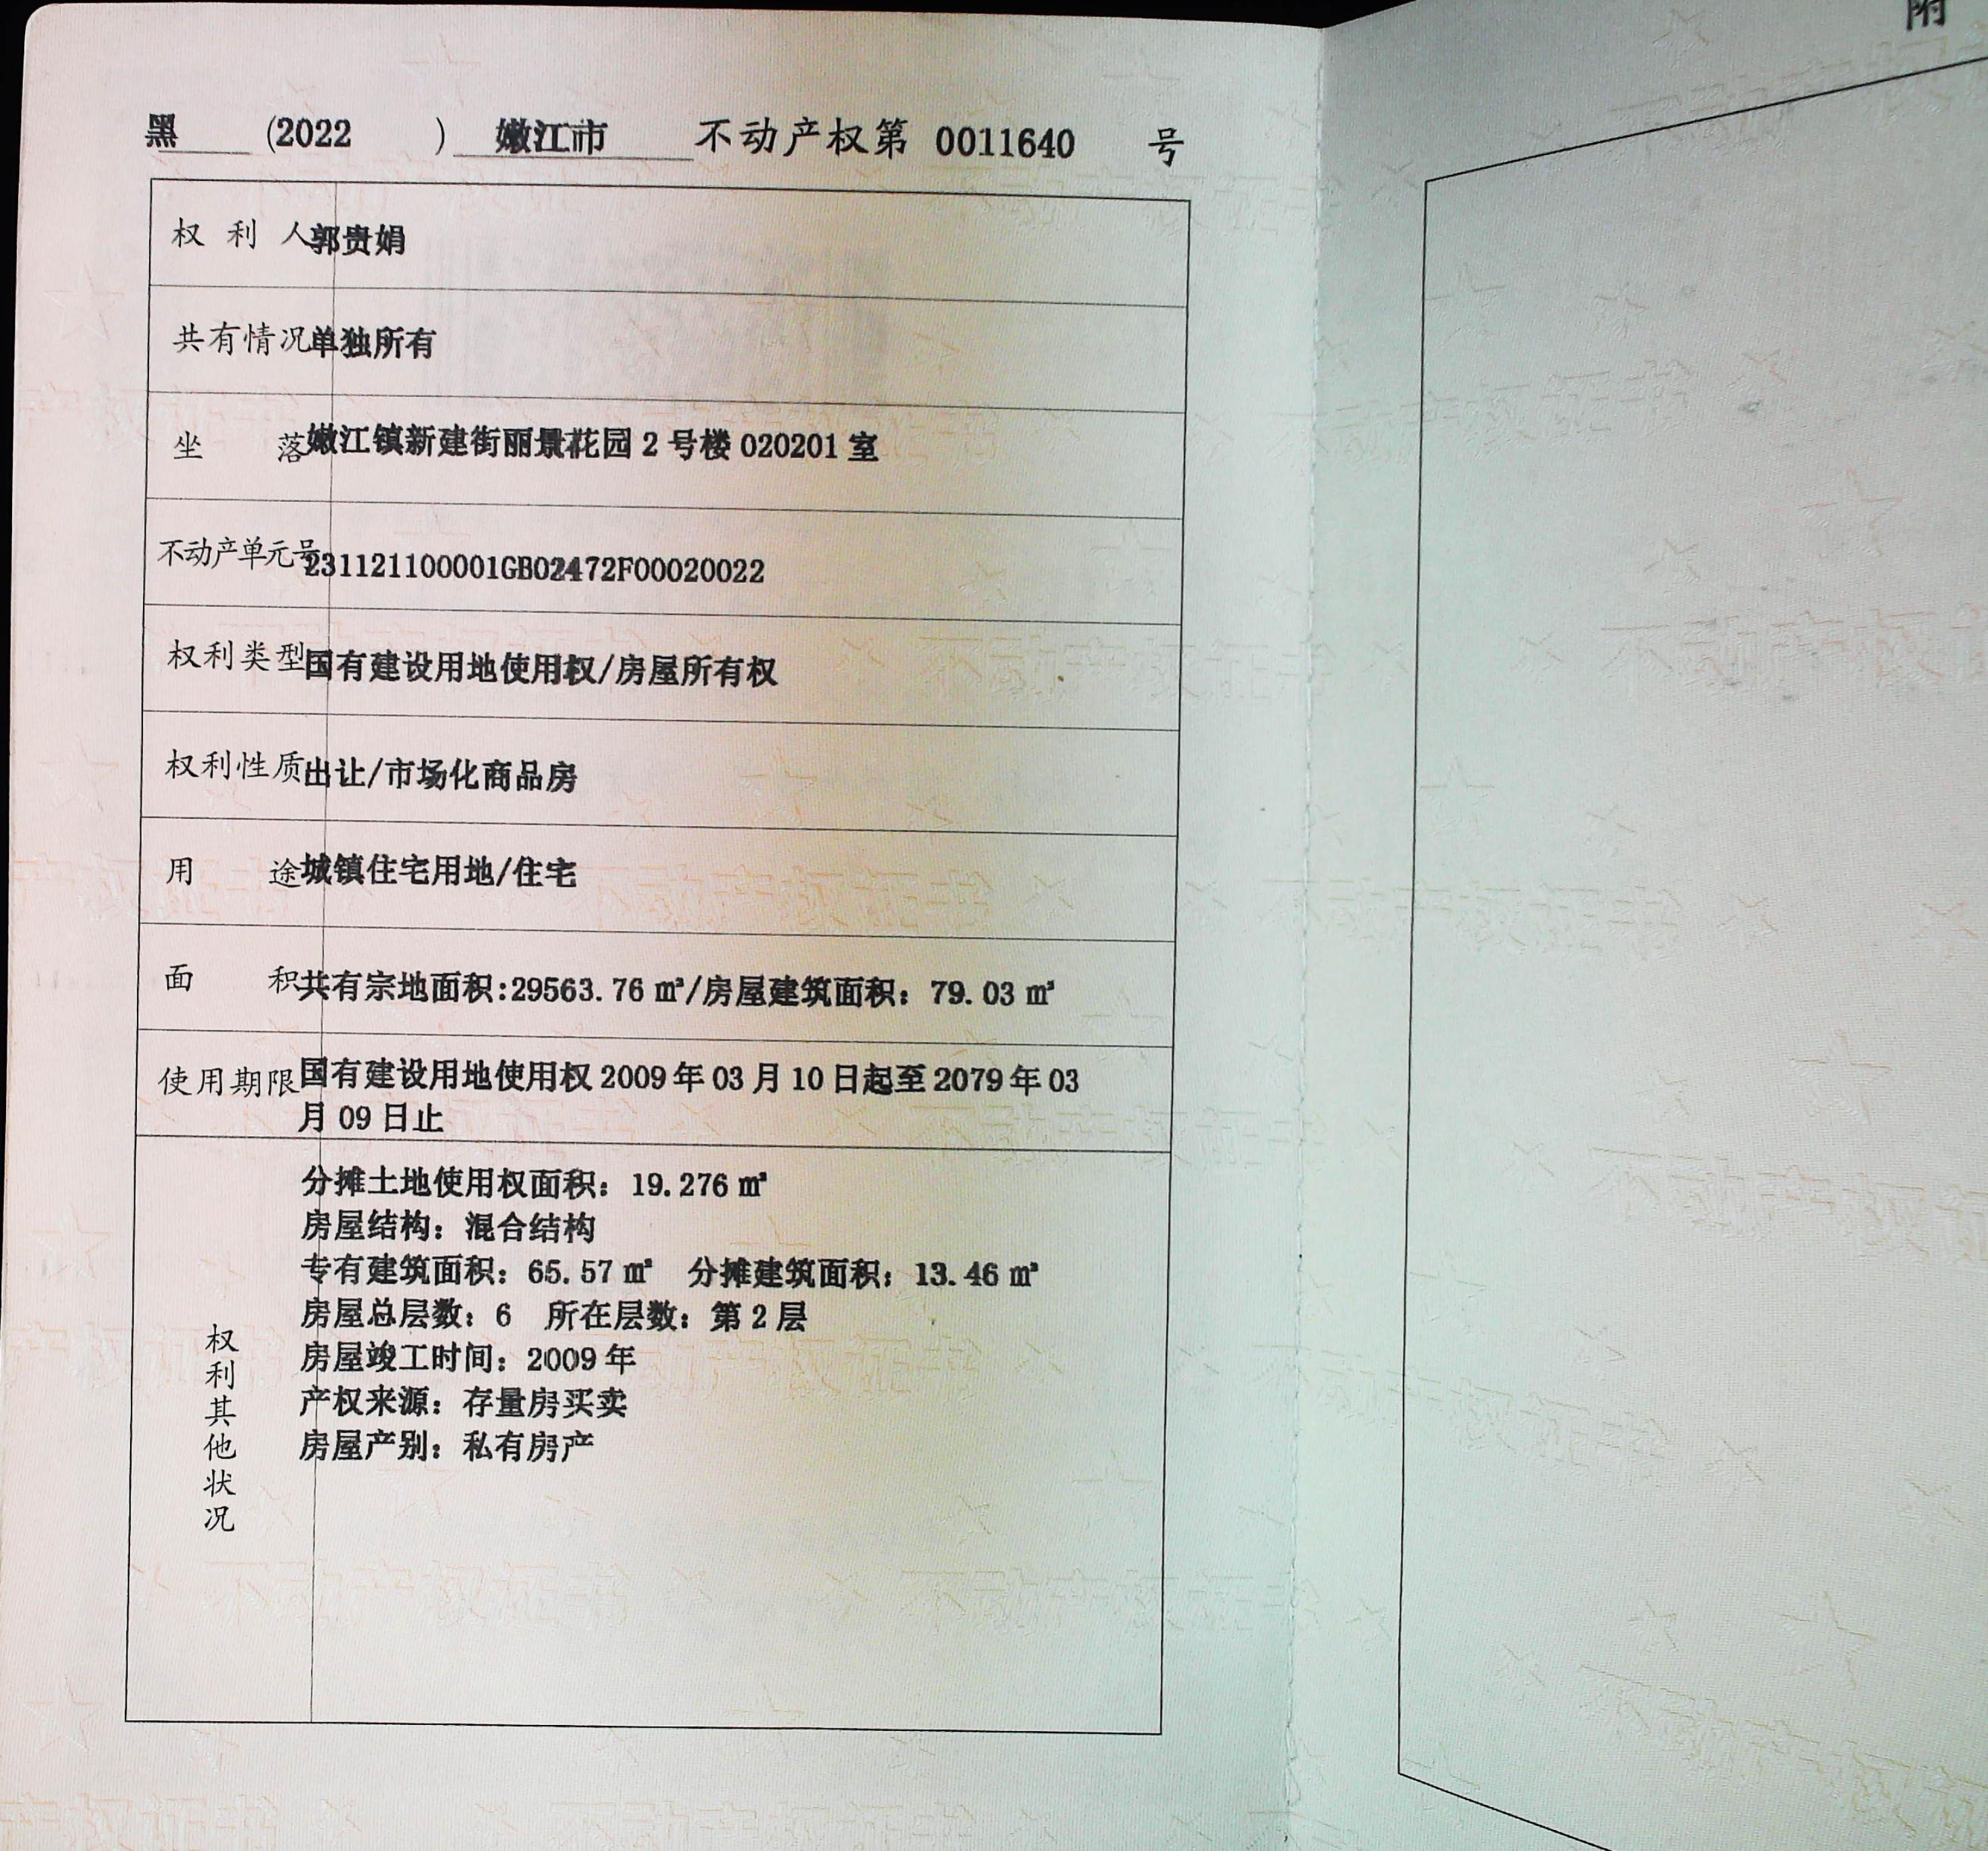 黑 (2022 ) 嫩江市 不动产权第 0011640 号
权利人 郭贵娟
共有情况 单独所有
坐落 嫩江镇新建街丽景花园 2 号楼 020201 室
不动产单元号 231121100001GB02472F00020022
权利类型 国有建设用地使用权/房屋所有权
权利性质 出让/市场化商品房
用途 城镇住宅用地/住宅
面积 共有宗地面积:29563.76 ㎡/房屋建筑面积：79.03 ㎡
使用期限 国有建设用地使用权 2009 年 03 月 10 日起至 2079 年 03
月 09 日止
权利其他状况
分摊土地使用权面积：19.276 ㎡
房屋结构：混合结构
专有建筑面积：65.57 ㎡ 分摊建筑面积：13.46 ㎡
房屋总层数：6 所在层数：第 2 层
房屋竣工时间：2009 年
产权来源：存量房买卖
房屋产别：私有房产
附